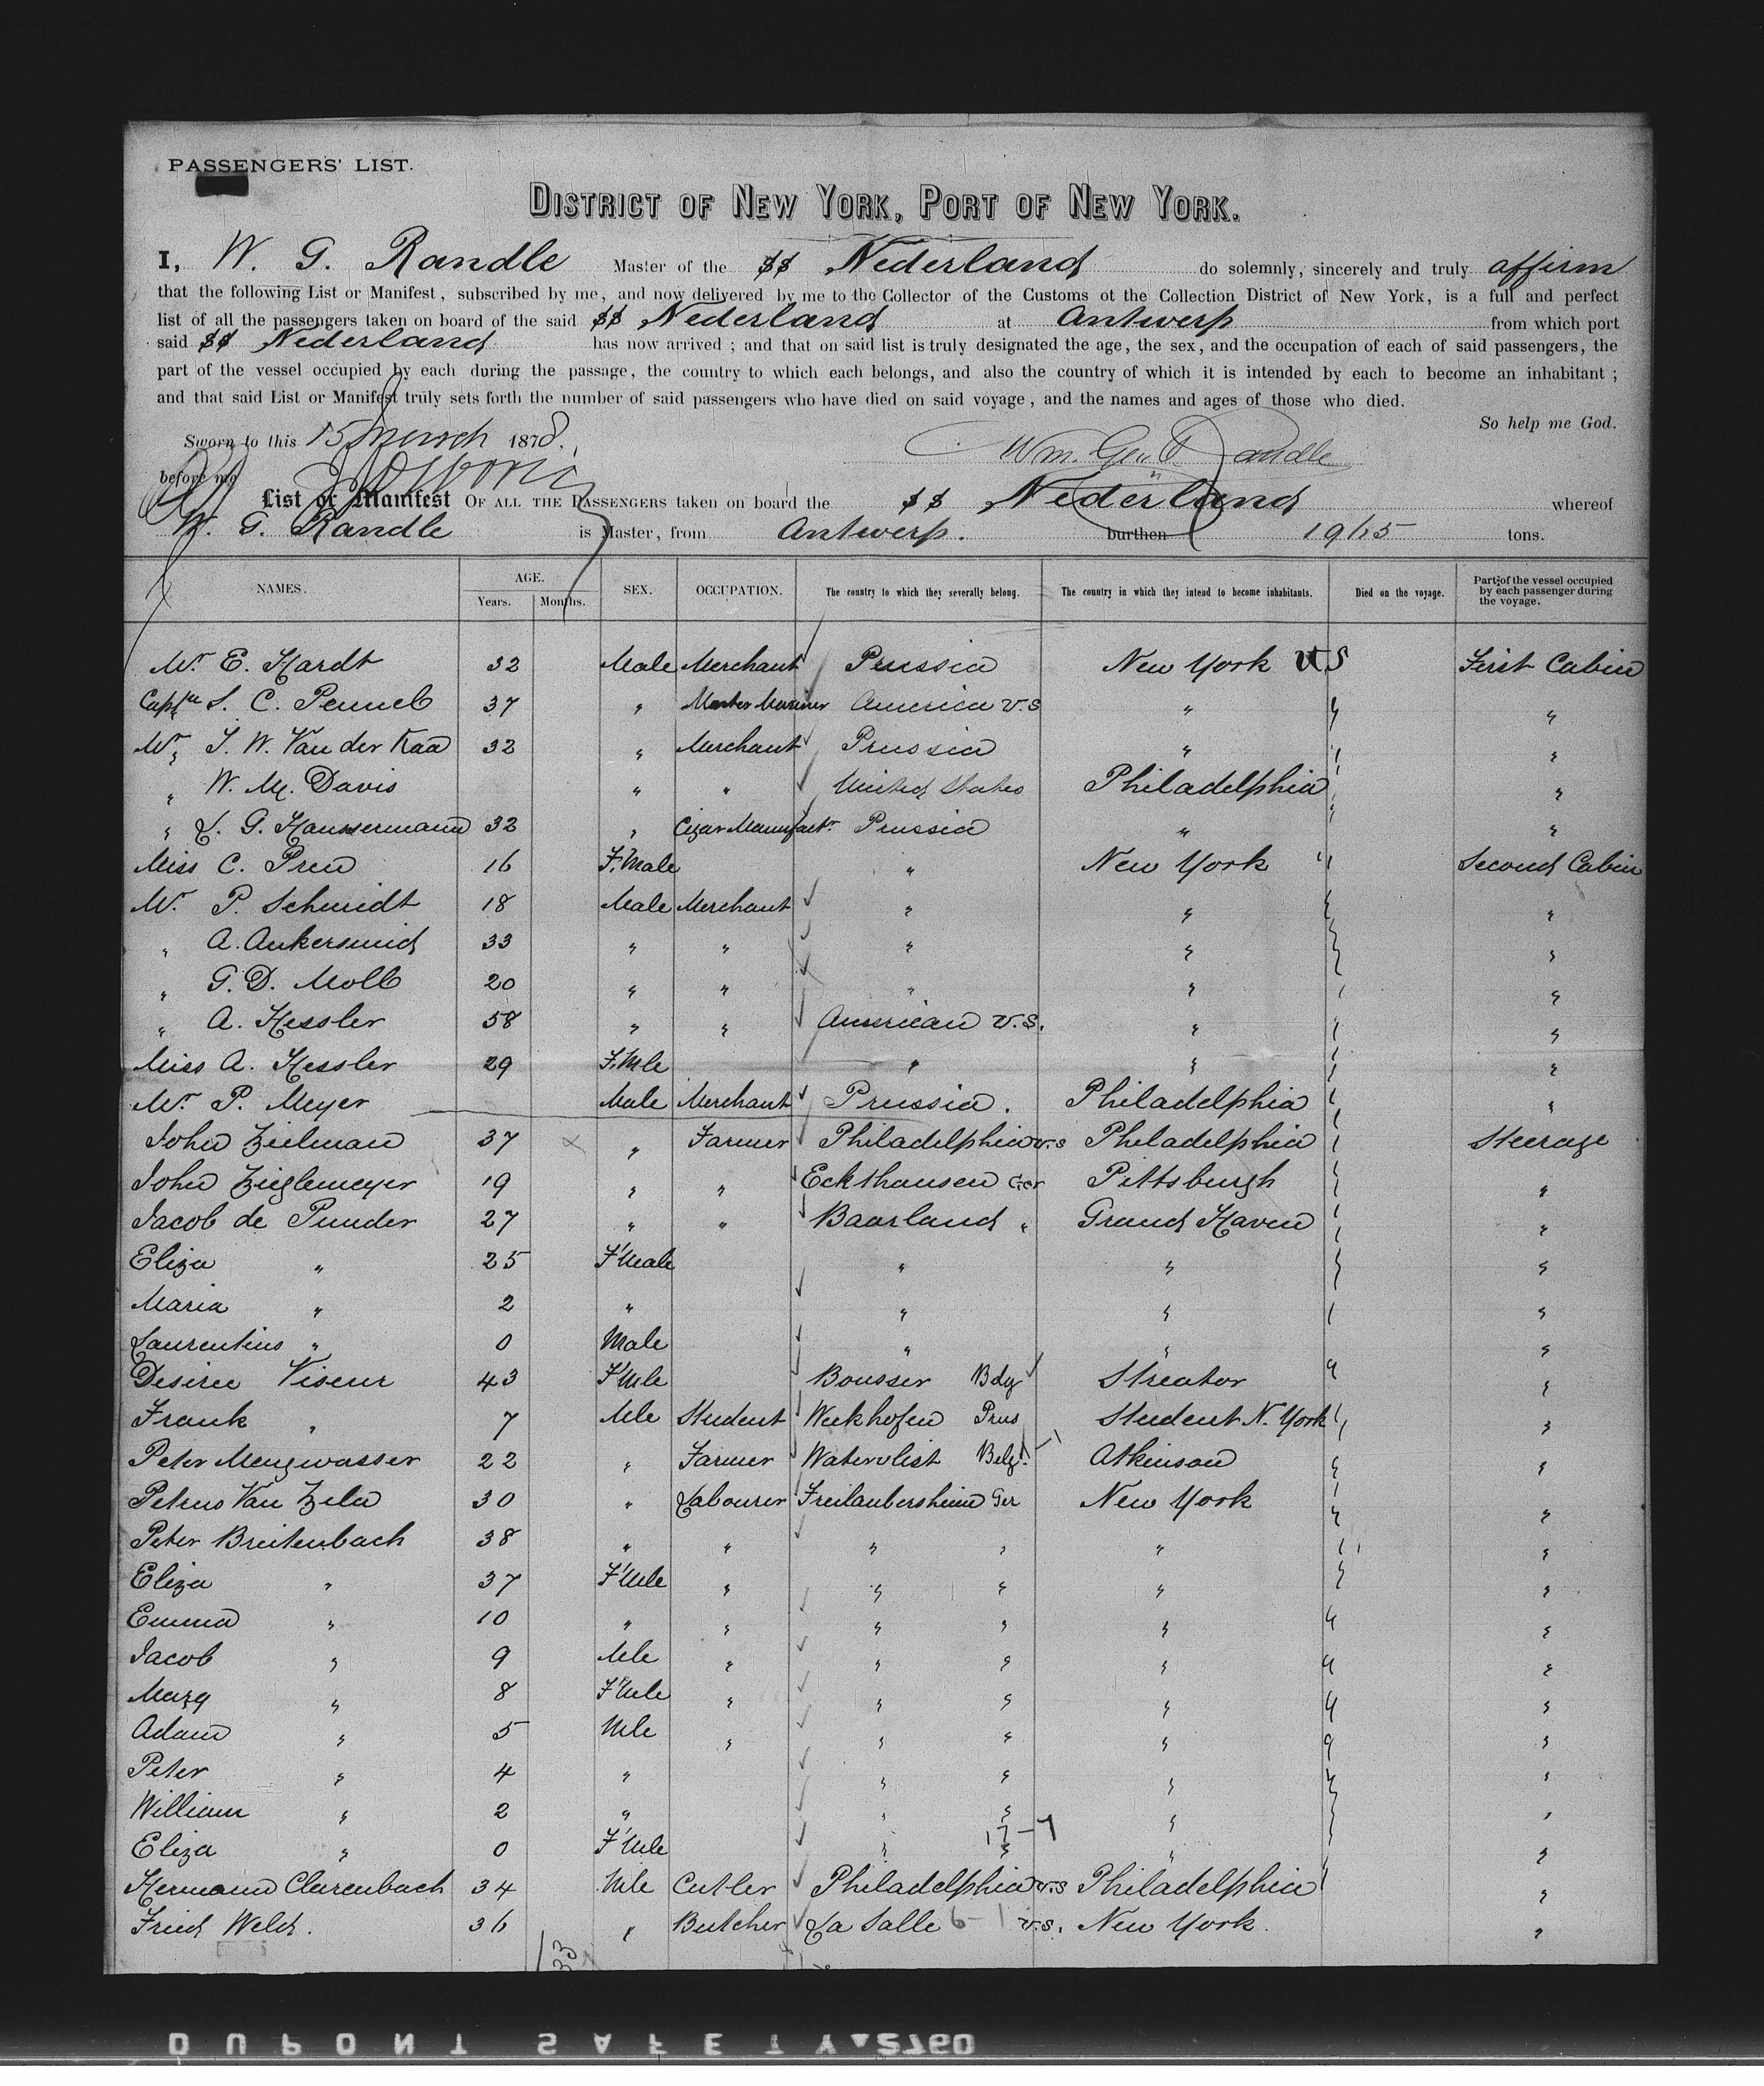 PASSENGERS' LIST.
DISTRICT OF NEW YORK, PORT OF NEW YORK.
I, W. G. Randle Master of the SS Nederland do solemnly, sincerely and truly affirm
that the following List or Manifest, subscribed by me, and now delivered by me to the Collector of the Customs ot the Collection District of New York, is a full and perfect
list of all the passengers taken on board of the said SS Nederland at Antwerp from which port
said SS Nederland has now arrived ; and that on said list is truly designated the age, the sex, and the occupation of each of said passengers, the
part of the vessel occupied by each during the passage, the country to which each belongs, and also the country of which it is intended by each to become an inhabitant ;
and that said List or Manifest truly sets forth the number of said passengers who have died on said voyage, and the names and ages of those who died.
So help me God.
Sworn to this 15 March 1878.
Wm. Geo. Randle
before me
List or Manifest OF ALL THE PASSENGERS taken on board the SS Nederland whereof
W. G. Randle is Master, from Antwerp. burthen 1965 tons.
NAMES. AGE. Years. Months. SEX. OCCUPATION. The country to which they severally belong. The country in which they intend to become inhabitants. Died on the voyage. Part of the vessel occupied by each passenger during the voyage.
Mr. E. Hardt 32 Male Merchant Prussia New York US First Cabin
Captn S. C. Pennel 37 " Master Mariner America U.S " " "
Mr. T. W. Van der Kaa 32 " Merchant Prussia " " "
" W. M. Davis " " United States Philadelphia " "
" L. G. Haussermann 32 " Cigar Manufactr. Prussia " " "
Miss C. Preu 16 F.Male " New York " Second Cabin
Mr. P. Schmidt 18 Male Merchant " " " "
" A. Ankersmid 33 " " " " " "
" G. D. Moll 20 " " " " " "
" A. Hessler 58 " " American U.S. " " "
Miss A. Hessler 29 F.Mle " " " "
Mr. P. Meyer Male Merchant Prussia. Philadelphia " "
John Zielman 37 " Farmer Philadelphia U.S Philadelphia " Steerage
John Zieglemeyer 19 " " Eckthausen Ger Pittsburgh " "
Jacob de Punder 27 " " Baarland " Grand Haven " "
Eliza " 25 F'Male " " " "
Maria " 2 " " " " "
Laurentius " 0 Male " " "
Desiree Viseur 43 F'Mle Bousser Belg Streator " "
Frank " 7 Mle Student Weekhofen Prus Student N. York " "
Peter Mengwasser 22 " Farmer Watervliet Belg. Atkinson " "
Petrus Van Zele 30 " Labourer Freilaubersheim Ger New York " "
Peter Breitenbach 38 " " " " " " "
Eliza " 37 F'Mle " " " " " "
Emma " 10 " " " " " " "
Jacob " 9 Mle " " " " " "
Marg " 8 F'Mle " " " " " "
Adam " 5 Mle " " " " " "
Peter " 4 " " " " " "
William " 2 " " " " " "
Eliza " 0 F'Mle " " " "
17-7
Hermann Clarenbach 34 Mle Cutler Philadelphia U.S Philadelphia " "
Fried Weld. 36 " Butcher La Salle 6-1 U.S. New York. "
33
DUPONT SAFETY 2760